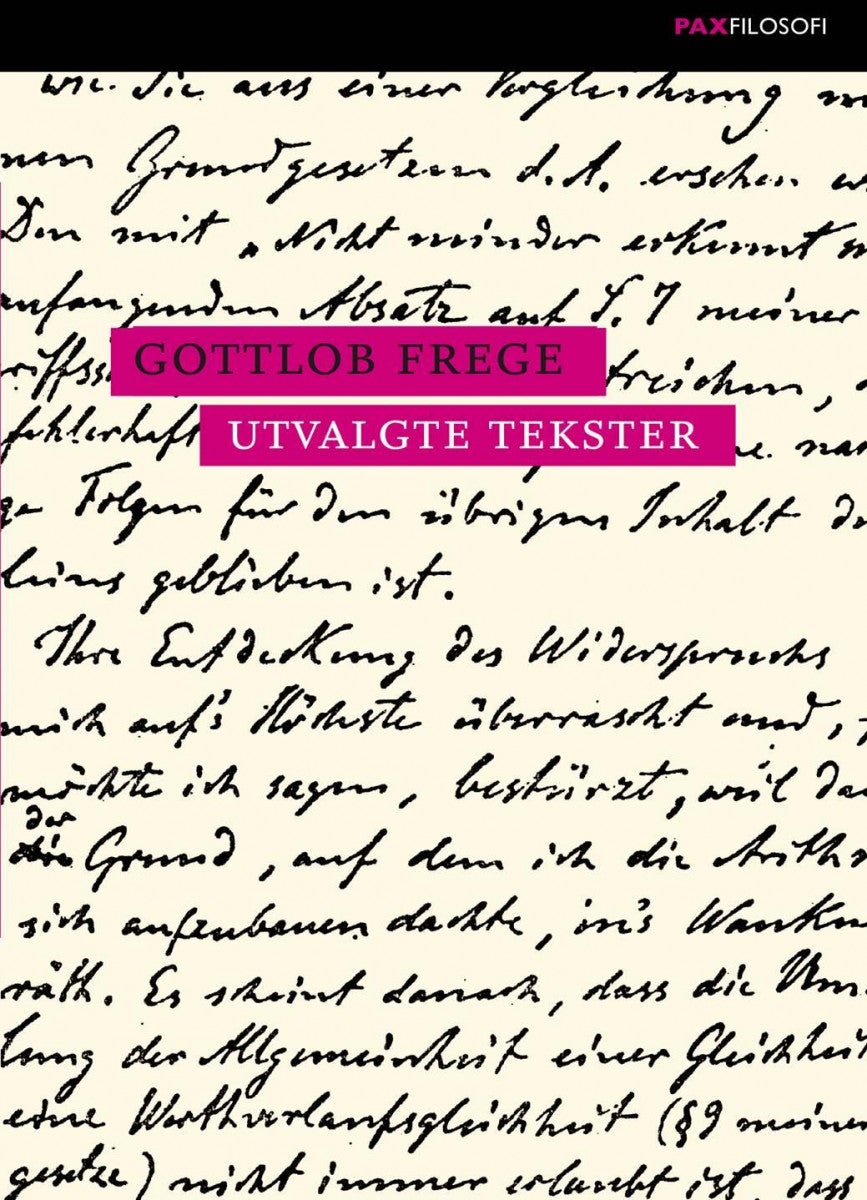 PAXFILOSOFI
wie. Sie aus einer Vergleichung
nen Grundgesetzen d. A. ersehen
Den mit „Nicht minder erkennt
anfangenden Absatz auf S. 7 meiner
GOTTLOB FREGE
riffss treichen,
UTVALGTE TEKSTER
fehlerhaft ne. nac
ge Folgen für den übrigen Inhalt
leins geblieben ist.
Ihre Entdeckung des Widerspruchs
mich auf's Höchste überrascht und,
möchte ich sagen, bestürzt, weil da
der
Grund, auf dem ich die Arithm
sich aufzubauen dachte, in's Wanken
räth. Es scheint danach, dass die Um
lung der Allgemeinheit einer Gleichheit
eine Werthverlaufsgleichheit (§9 meiner
gesetze) nicht immer erlaubt ist, dass